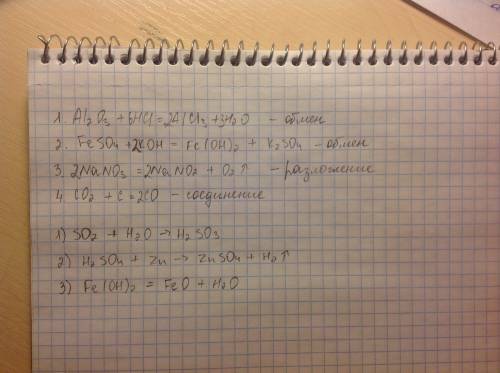 1. Al2O3 + 6HCl = 2AlCl3 + 3H2O - обмен
2. FeSO4 + 2KOH = Fe(OH)2 + K2SO4 - обмен
3. 2NaNO3 = 2NaNO2 + O2↑ - разложение
4. CO2 + C = 2CO - соединение
1) SO2 + H2O → H2SO3
2) H2SO4 + Zn → ZnSO4 + H2↑
3) Fe(OH)2 = FeO + H2O